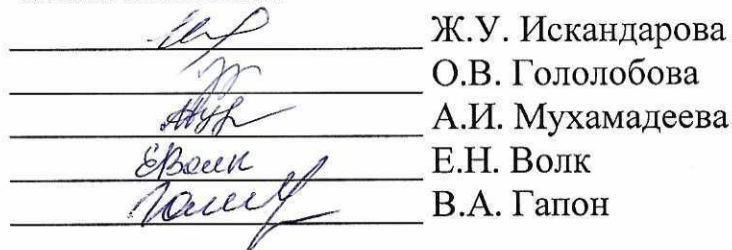 Ж.У. Искандарова
О.В. Гололобова
А.И. Мухамадеева
ЕВолк Е.Н. Волк
В.А. Гапон